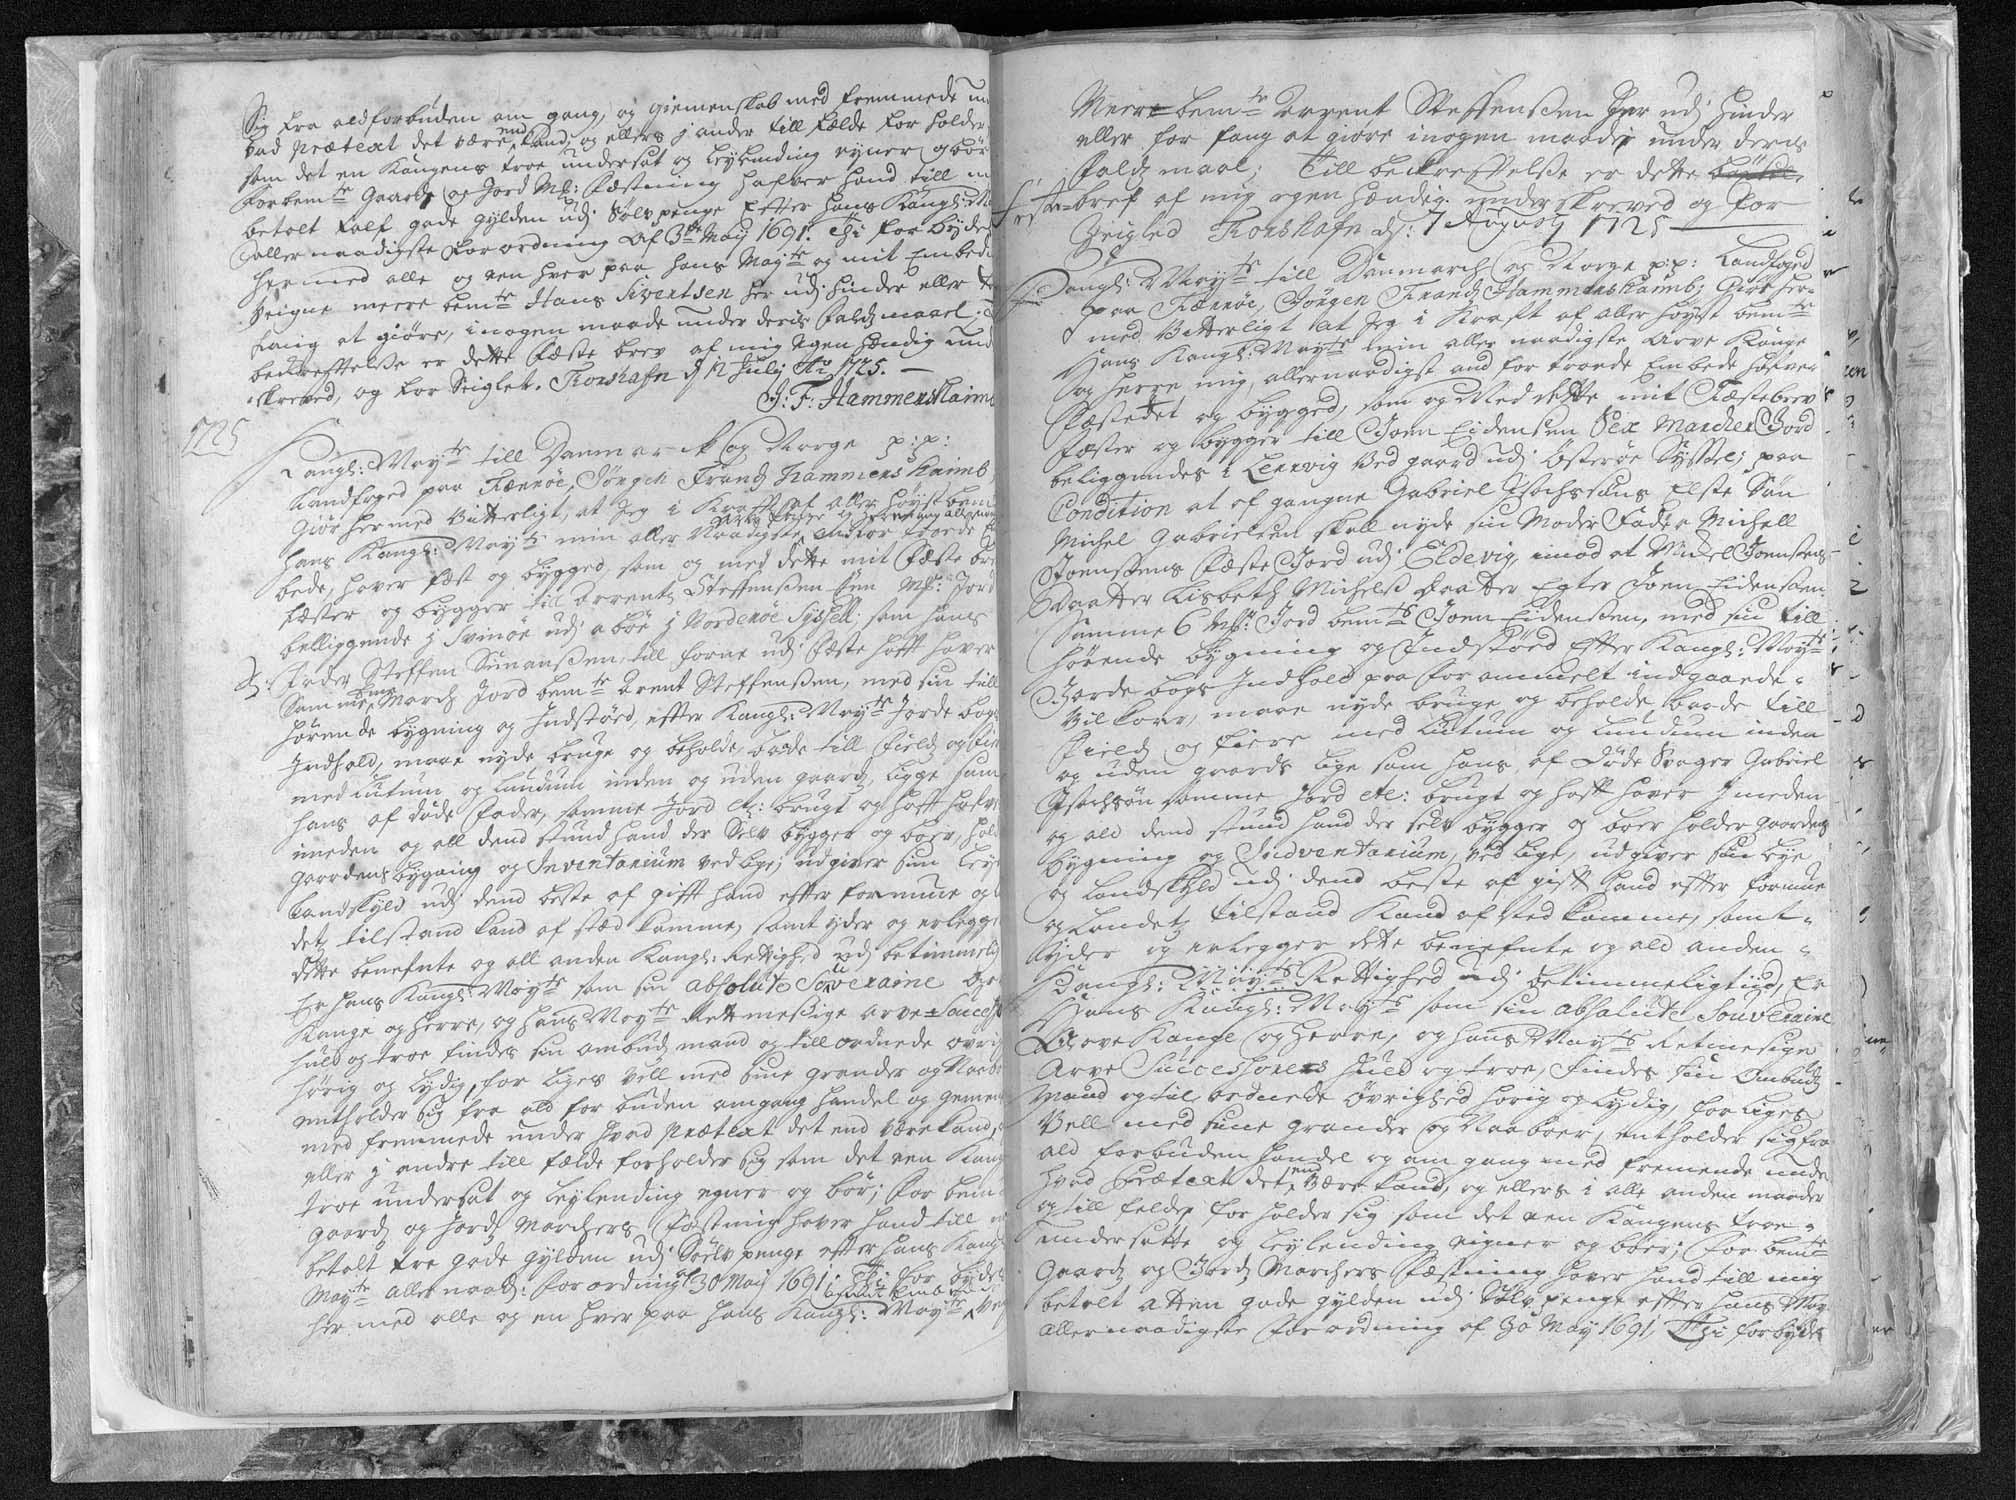 Sig fra ald forbuden om gang, og giemenskab med fremmede un
vad Prætext det være end kand, og ellers j ander till fælde for holder
som det en Kongens troe undersat og leylending eyner og bør
Forbemte Gaards og Jord Mk: Fæstning hafver hand till m
betalt half gode gylden udj Sølv penge Efter Hans Kongl: M
aller naadigste Forordning Af 30te May 1691. Thi forbydes
hermed alle og een hver paa Hans Maytz og mit Embeds
Veigne meere bemte Hans Sivertsen her udj hinder eller for
fang at giøre, i nogen maade under deris Faldz maael. T
bekreftelse er dette Fæste brev af mig Egen hændig und
skreved, og for Seiglet. Thorshafn d 12 July Ao 1725.
J: F: Hammershaimb
1725
Kongl: Maytz till Danmarck og Norge p: p:
Landfoged paa Færröe, Jörgen Frandz Hammershaimb,
Giør hermed Vitterligt, at Jeg i Kraft af aller høyst bem
Arfve Konge og Herre mig aller naad
Hans Kongl: Maytz min aller Naadigste anfor troede Em
bede, haver fæst og bygged, som og med dette mit Fæste bre
fæster og bygger till Arrent Steffensen fem Mk: Jord
belliggende j Svinöe udj a böe j Norderöe Sysell; som hans
Fader Steffen Simonsen, till forne udj Fæste haft haver
Samme fem March Jord bemte Arent Steffensen, med sin till
hørende bygning og Indstöed, efter Kongl: Maytz Jorde bogs
Indhold, maae nyde bruge og beholde, baade till Field og fiere
med Lutum og Lundum inden og uden gaard, ligge som
hans af døde Fader, samme Jord etc: brugt og haft hafver
imeden og all dend stund hand der Selv bygger og boer, hold
gaardens bygning og Inventarium ved lige; udgiver sin Leye
Landskyld udj dend beste af gift hand efter formue og
detz tilstand kand af sted komme, samt yder og erlegger
dette benefnte og all anden Kongl: Rettighed udj betimmelig
Er Hans Kongl: Maytz som sin absolute Souveraine Arve
Konge og Herre, og Hans Maytz Rettmessige arve Success
huld og troe findes sin ombudz mand og till ordnede øvrig
hörig og lydig, for liges vell med sine grander og Naabo
entholder sig fra ald for buden omgang handel og gemen
med fremmede under hvad Prætext det end være kand,
eller j andre till fælde forholder sig som det een Kong
troe undersat og leylending egner og bør; for bem
gaard og Jord Marchers Fæstning haver hand till m
betalt fire gode gylden udj Sølv penge efter Hans Kongl
Maytz aller naadi: forordning af 30 May 1691; Thi for bydes
her med alle og en hver paa Hans Kongl: Maytz Vei
Meere bemte Arrent Steffensen her udj hinder
eller for fang at giøre i nogen maader under deris
Faldz maal; Till bekreftelse er dette
bref af mig egen hændig underskreved og for
Zeigled Thorshafn d: 7 Augusty 1725
Kongl: Maytz till Danmarch og Norge p: p: Landfoged
paa Færröe, Jörgen Frandz Hammershaimb; Giør her
med Vitterligt at Jeg i Kraft af aller höyst bemte
Hans Kongl: Maytz min aller naadigste Arve Konge
og Herre mig, allernaadigst anfortroede Embede hafver
Fæstedet og bygged, som og Med dette mit Fæstebrev
Fæster og bygger till Joen Eidensen Sex Marcher Jord
beliggendes i Lervig Ved gaard udj Österöe Syssel; paa
Condition at af gangne Gabriel Isachsöns Elste Søn
Michel Gabrielsen skall nyde sin Moder Fader Michell
Joensens Fæste Jord udj Eldevig, imod at Michel Joensens
Daatter Lisbeth Michels daatter Egter Joen Eidensen
Samme 6 Mk: Jord bemte Joen Eidensen, med sin till
hørende bygning og Indstöed Efter Kongl: Maytz
Jorde bogs Indhold paa for ommelt indgaaende
Vilkaar, maae nyde bruge og beholde baade till
Field og fiere med Lutum og Lundum inden
og uden gaards lige som hans af döde Svoger Gabriel
Isachsön samme Jord etc: brugt og haft haver Imeden
og ald dend stund hand der selv bygger og boer holder gaardens
bygning og Indventarium, ved lige, udgiver sin leye
og landskyld udj dend beste af gift hand efter formue
og Landetz tilstand kand af sted komme, samt
yder og erlegger dette benefnte og ald anden
Kongl: Maytz Rettighed udj betimmelig tiid, Er
Hans Kongl: Maytz som sin absolute Souveraine
Arve Konge og Herre, og Hans Maytz Retmesige
Arve Successorers huld og troe, findes sin Ombudtz
Mand og til ordnede Øvrighed hørig og lydig, for liges
Vell med sine grander og Naaboer, entholder sig fra
ald forbuden handel og om gang med fremmede unde
hvad Prætext det end være kand, og ellers i alle anden maader
og till felde for holder sig som det een Kongens troe
undersatte og leylending eigner og bør; for bemte
Gaard og Jord Marchers Fæstning haver hand till mig
betalt atten gode gylden udj Sølv penge efter Hans May
Allernaadigste forordning af 30 May 1691, Thi forbydes